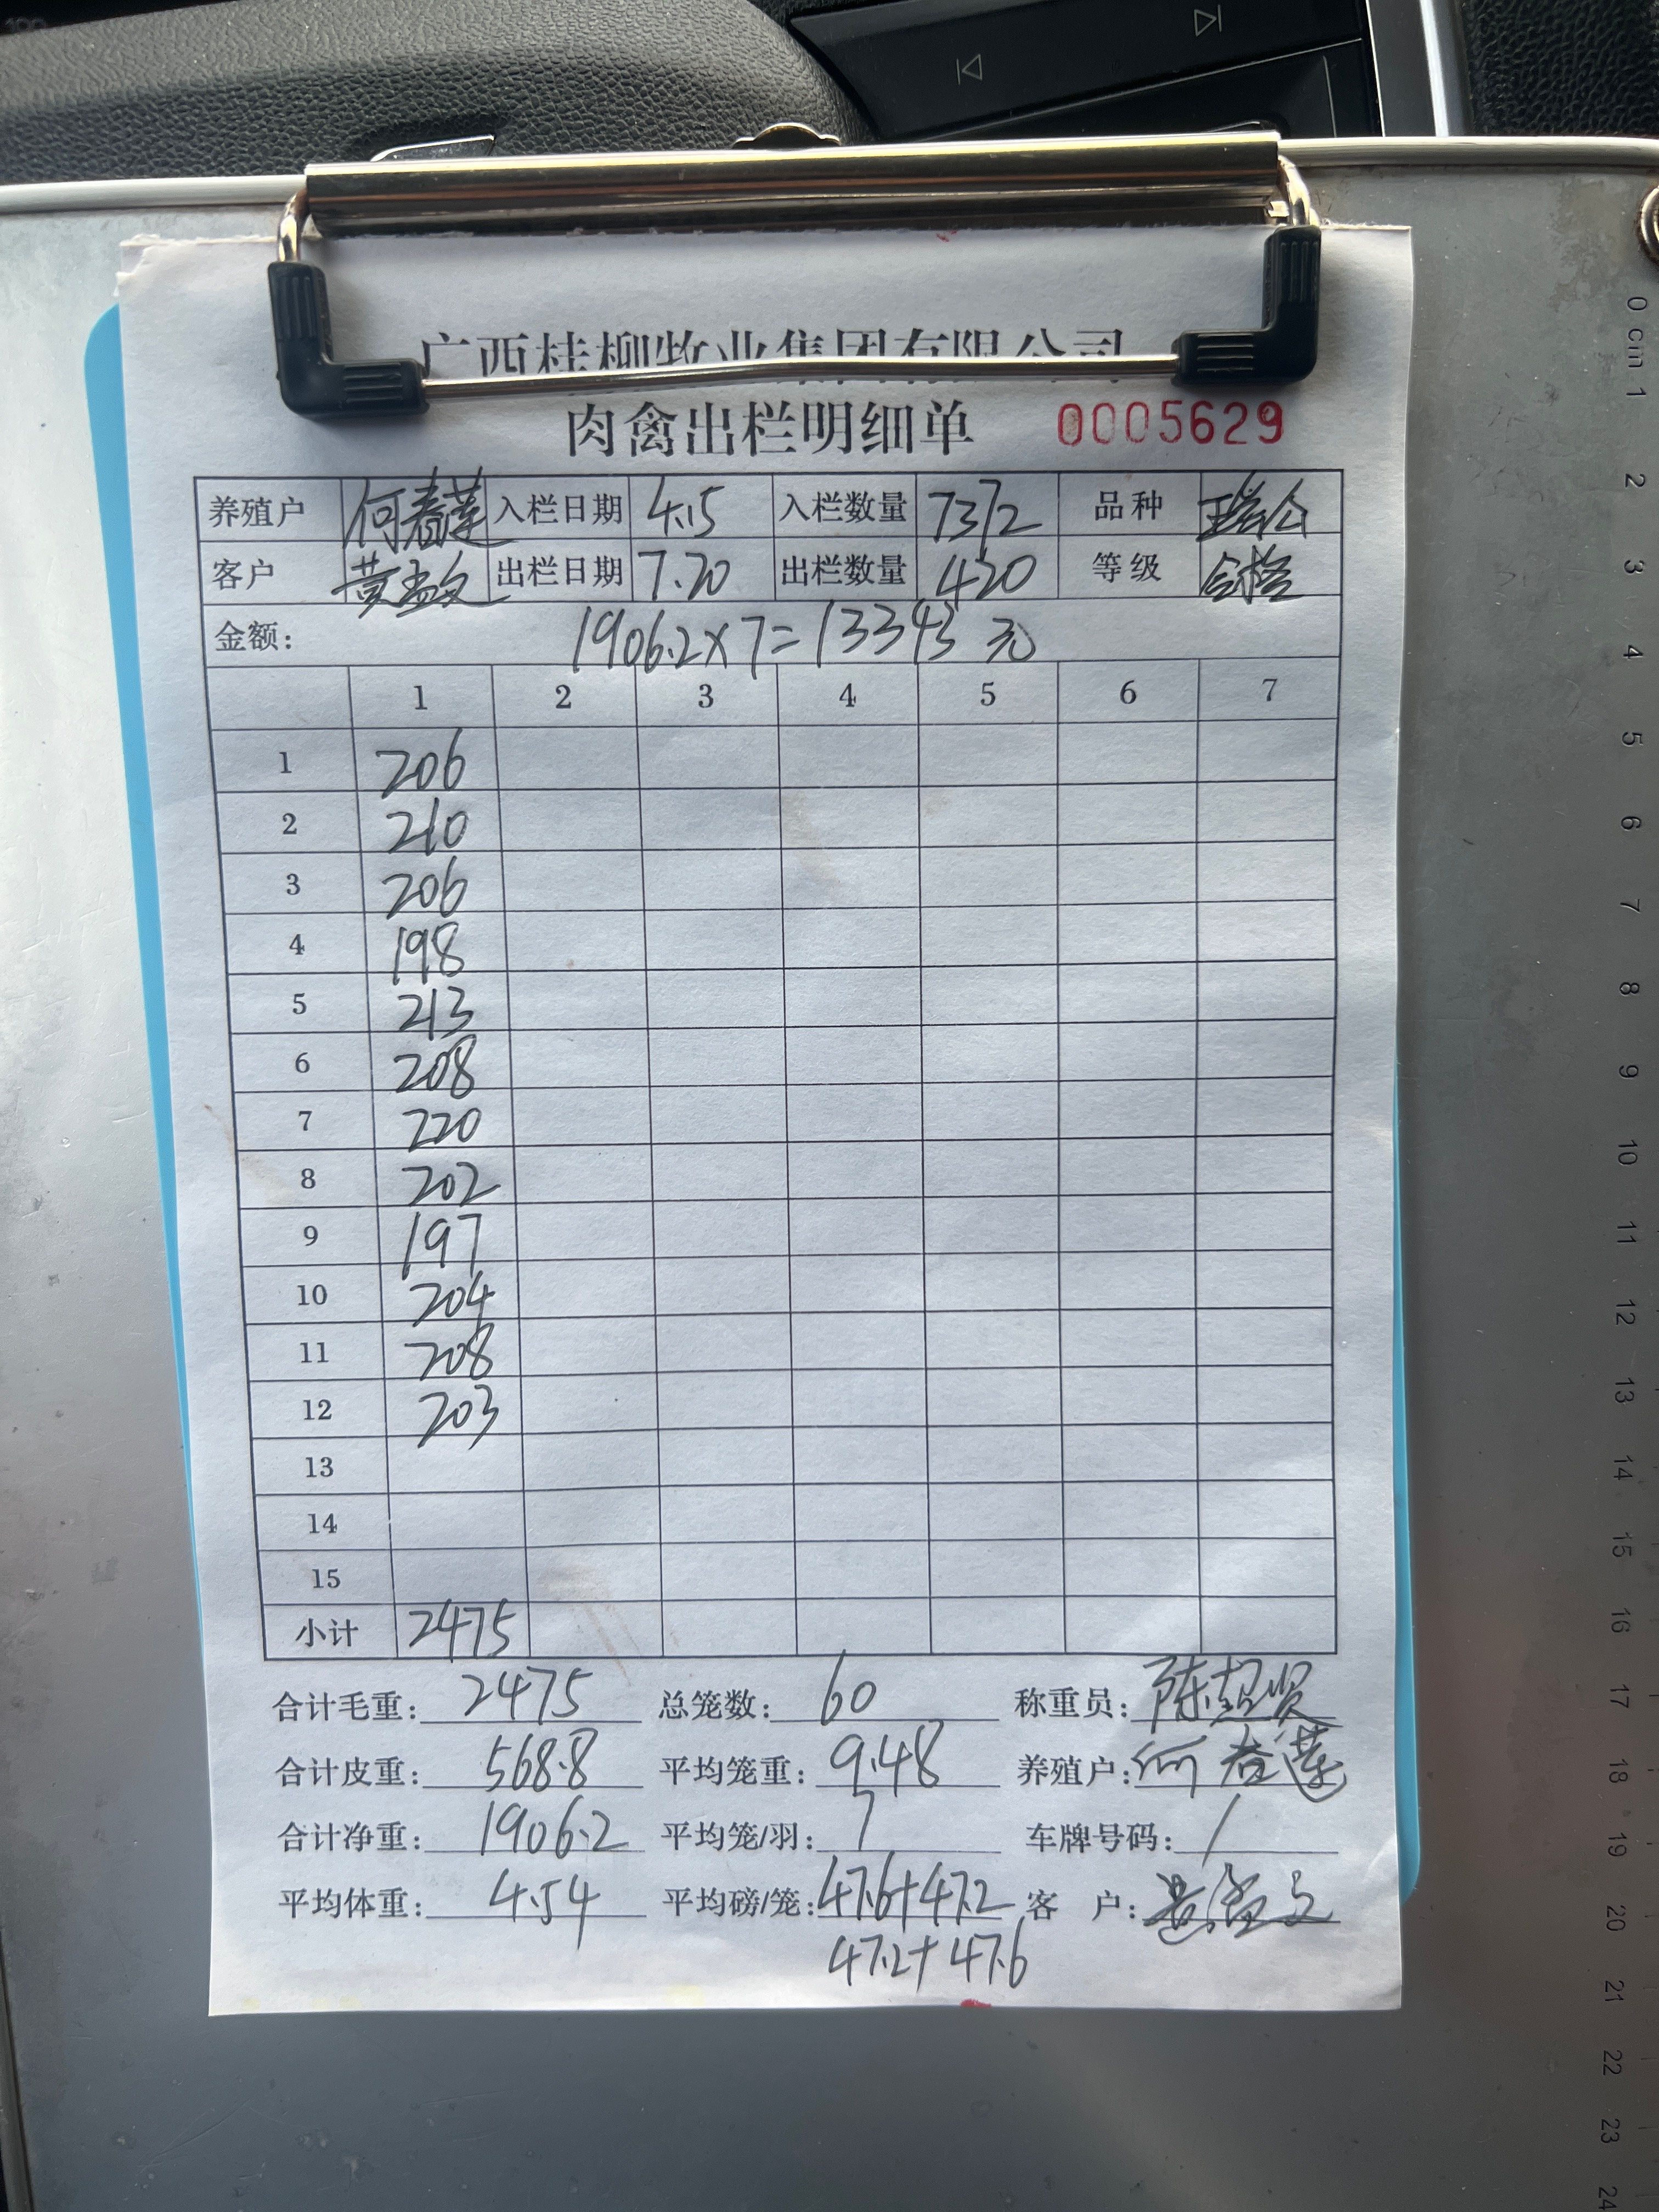 广西桂柳牧业集团有限公司
肉禽出栏明细单 0005629
养殖户 何春莲 入栏日期 4.15 入栏数量 7372 品种 瑶公
客户 黄孟文 出栏日期 7.20 出栏数量 420 等级 合格
金额: 1906.2×7=13343 元
1 2 3 4 5 6 7
1 206
2 210
3 206
4 198
5 213
6 208
7 220
8 202
9 197
10 204
11 208
12 203
13
14
15
小计 2475
合计毛重: 2475 总笼数: 60 称重员: 陈超贤
合计皮重: 568.8 平均笼重: 9.48 养殖户: 何春莲
合计净重: 1906.2 平均笼/羽: 7 车牌号码: /
平均体重: 4.54 平均磅/笼: 47.6+47.2 客 户: 黄孟文
47.2+47.6
0 cm 1
2
3
4
5
6
7
8
9
10
11
12
13
14
15
16
17
18
19
20
21
22
23
24